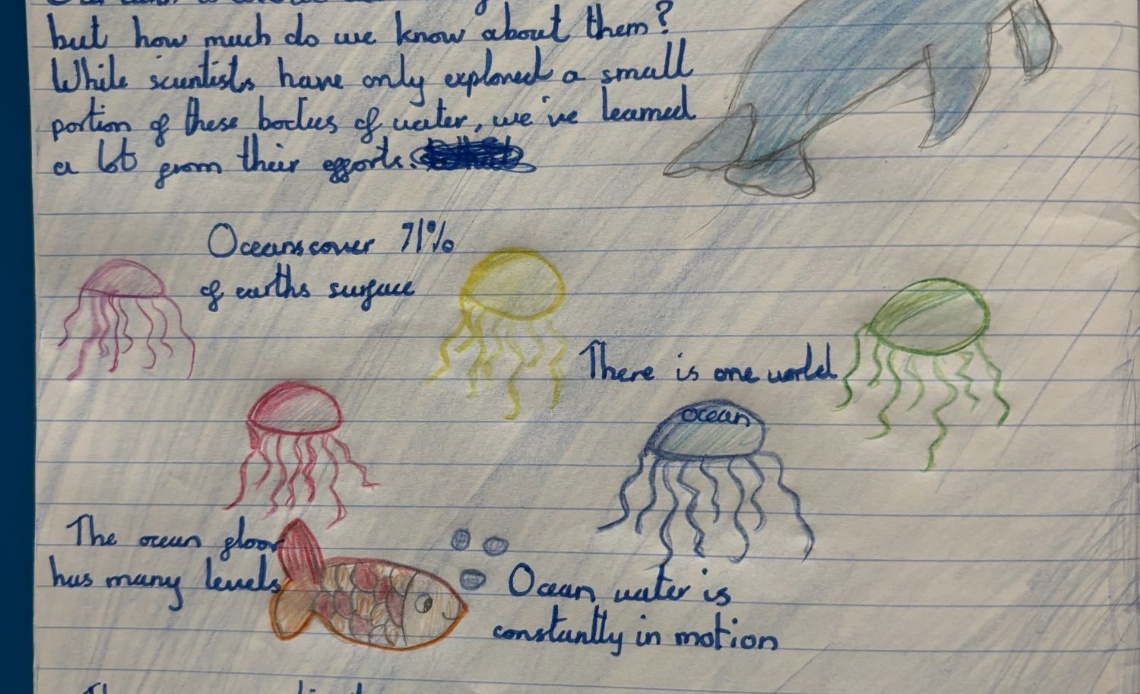 but how much do we know about them?
While scientists have only explored a small
portion of these bodies of water, we've learned
a lot from their efforts.
Oceans cover 71%
of earths surface
There is one world
ocean
The ocean floor
has many levels
Ocean water is
constantly in motion